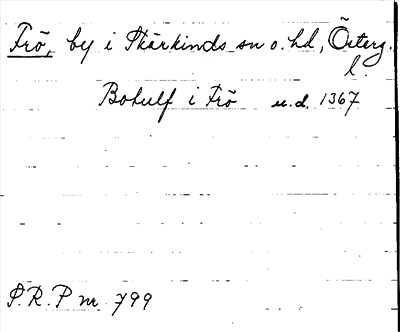 Frö, by i Skärkinds sn o. hd, Österg.
l.
Bohulf i Frö u.d. 1367
S.R.P nr 799